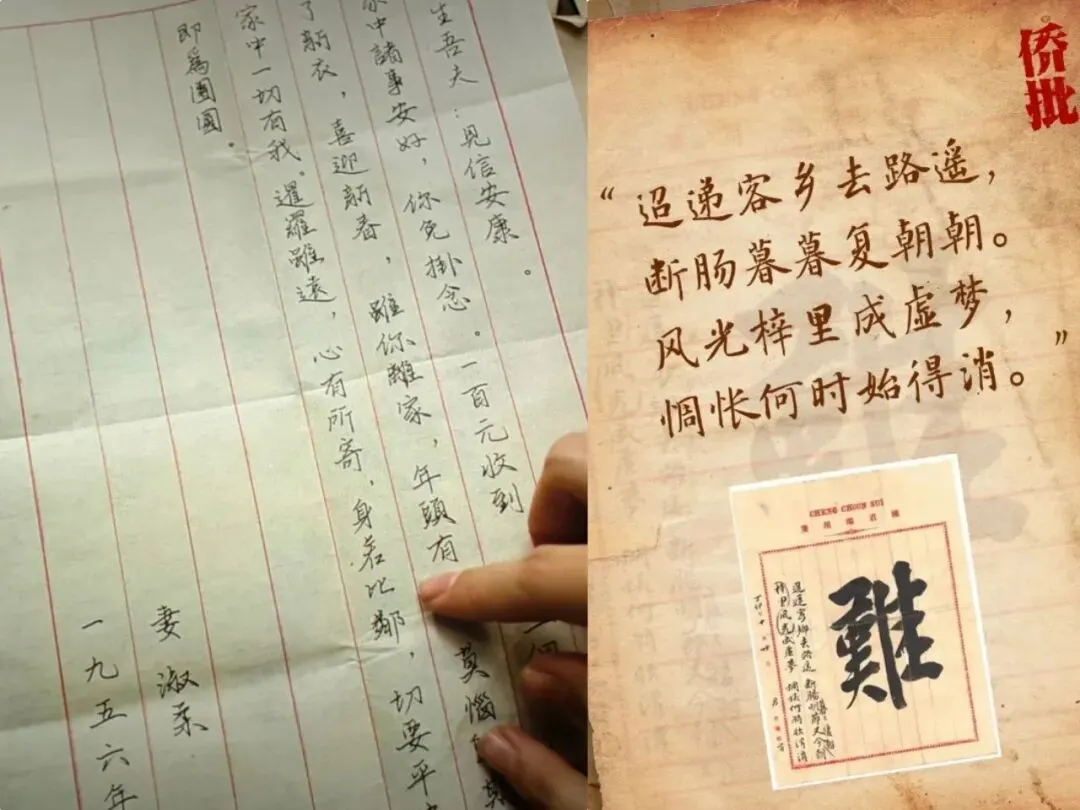 生吾夫：見信安康。
中諸事安好，你免掛念。一百元收到
了新衣，喜迎新春，雖你離家，年頭有
莫惱
家中一切有我。暹羅雖遠，心有所寄，身若比鄰，切要平
即爲團圓。
妻淑柔
一九五六年
侨批
“迢递客乡去路遥，
断肠暮暮复朝朝。
风光梓里成虚梦，
惆怅何时始得消。”
CHENG CHOUN SUI
難